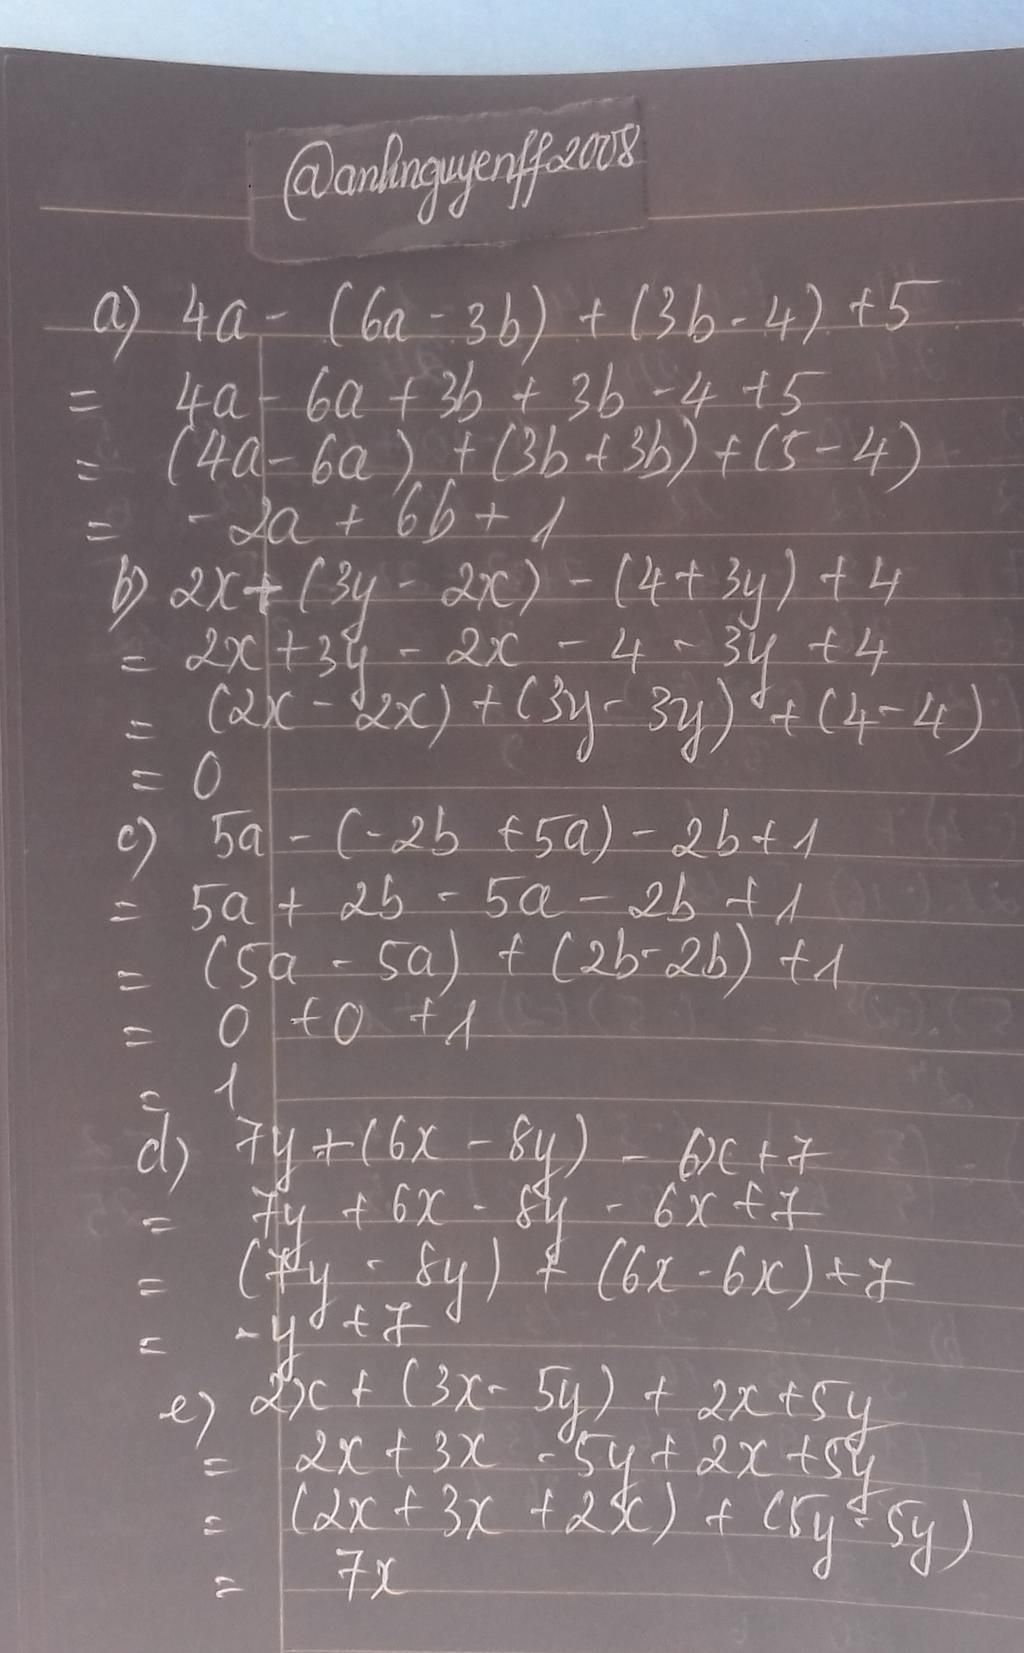 @anhnguyenff2008
a) 4a - (6a - 3b) + (3b - 4) + 5
= 4a - 6a + 3b + 3b - 4 + 5
= (4a - 6a) + (3b + 3b) + (5 - 4)
= - 2a + 6b + 1
b) 2x + (3y - 2x) - (4 + 3y) + 4
= 2x + 3y - 2x - 4 - 3y + 4
= (2x - 2x) + (3y - 3y) + (4 - 4)
= 0
c) 5a - (-2b + 5a) - 2b + 1
= 5a + 2b - 5a - 2b + 1
= (5a - 5a) + (2b - 2b) + 1
= 0 + 0 + 1
= 1
d) 7y + (6x - 8y) - 6x + 7
= 7y + 6x - 8y - 6x + 7
= (7y - 8y) + (6x - 6x) + 7
= -y + 7
e) 2x + (3x - 5y) + 2x + 5y
= 2x + 3x - 5y + 2x + 5y
= (2x + 3x + 2x) + (5y - 5y)
= 7x